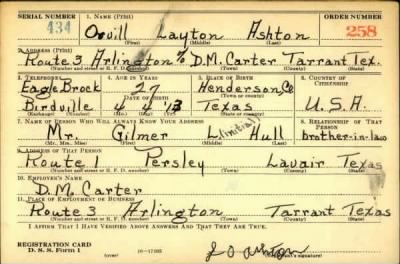 SERIAL NUMBER 1. NAME (Print) ORDER NUMBER
434 Layton Ashton 258
(First) (Middle) (Last)
2. ADDRESS (Print)
Route 3 Arlington % D.M. Carter Tarrant Tex.
(Number and street or R. F. D. number) (Town) (County) (State)
3. TELEPHONE 4. AGE IN YEARS 5. PLACE OF BIRTH 6. COUNTRY OF CITIZENSHIP
Eagle Brock 27 Henderson, Co
DATE OF BIRTH (Town or county)
Birdville 4 4 '13 Texas U.S.A.
(Exchange) (Number) (Mo.) (Day) (Yr.) (State or country)
7. NAME OF PERSON WHO WILL ALWAYS KNOW YOUR ADDRESS 8. RELATIONSHIP OF THAT PERSON
Mr. Gilmer L. (initial) Hull brother-in-law
(Mr., Mrs., Miss) (First) (Middle) (Last)
9. ADDRESS OF THAT PERSON
Route 1 Persley Texas
(Number and street or R. F. D. number) (Town) (County) (State)
10. EMPLOYER'S NAME
D.M. Carter
11. PLACE OF EMPLOYMENT OR BUSINESS
Route 3 Arlington Tarrant Texas
(Number and street or R. F. D. number) (Town) (County) (State)
I AFFIRM THAT I HAVE VERIFIED ABOVE ANSWERS AND THAT THEY ARE TRUE.
REGISTRATION CARD
D. S. S. Form 1 (over)